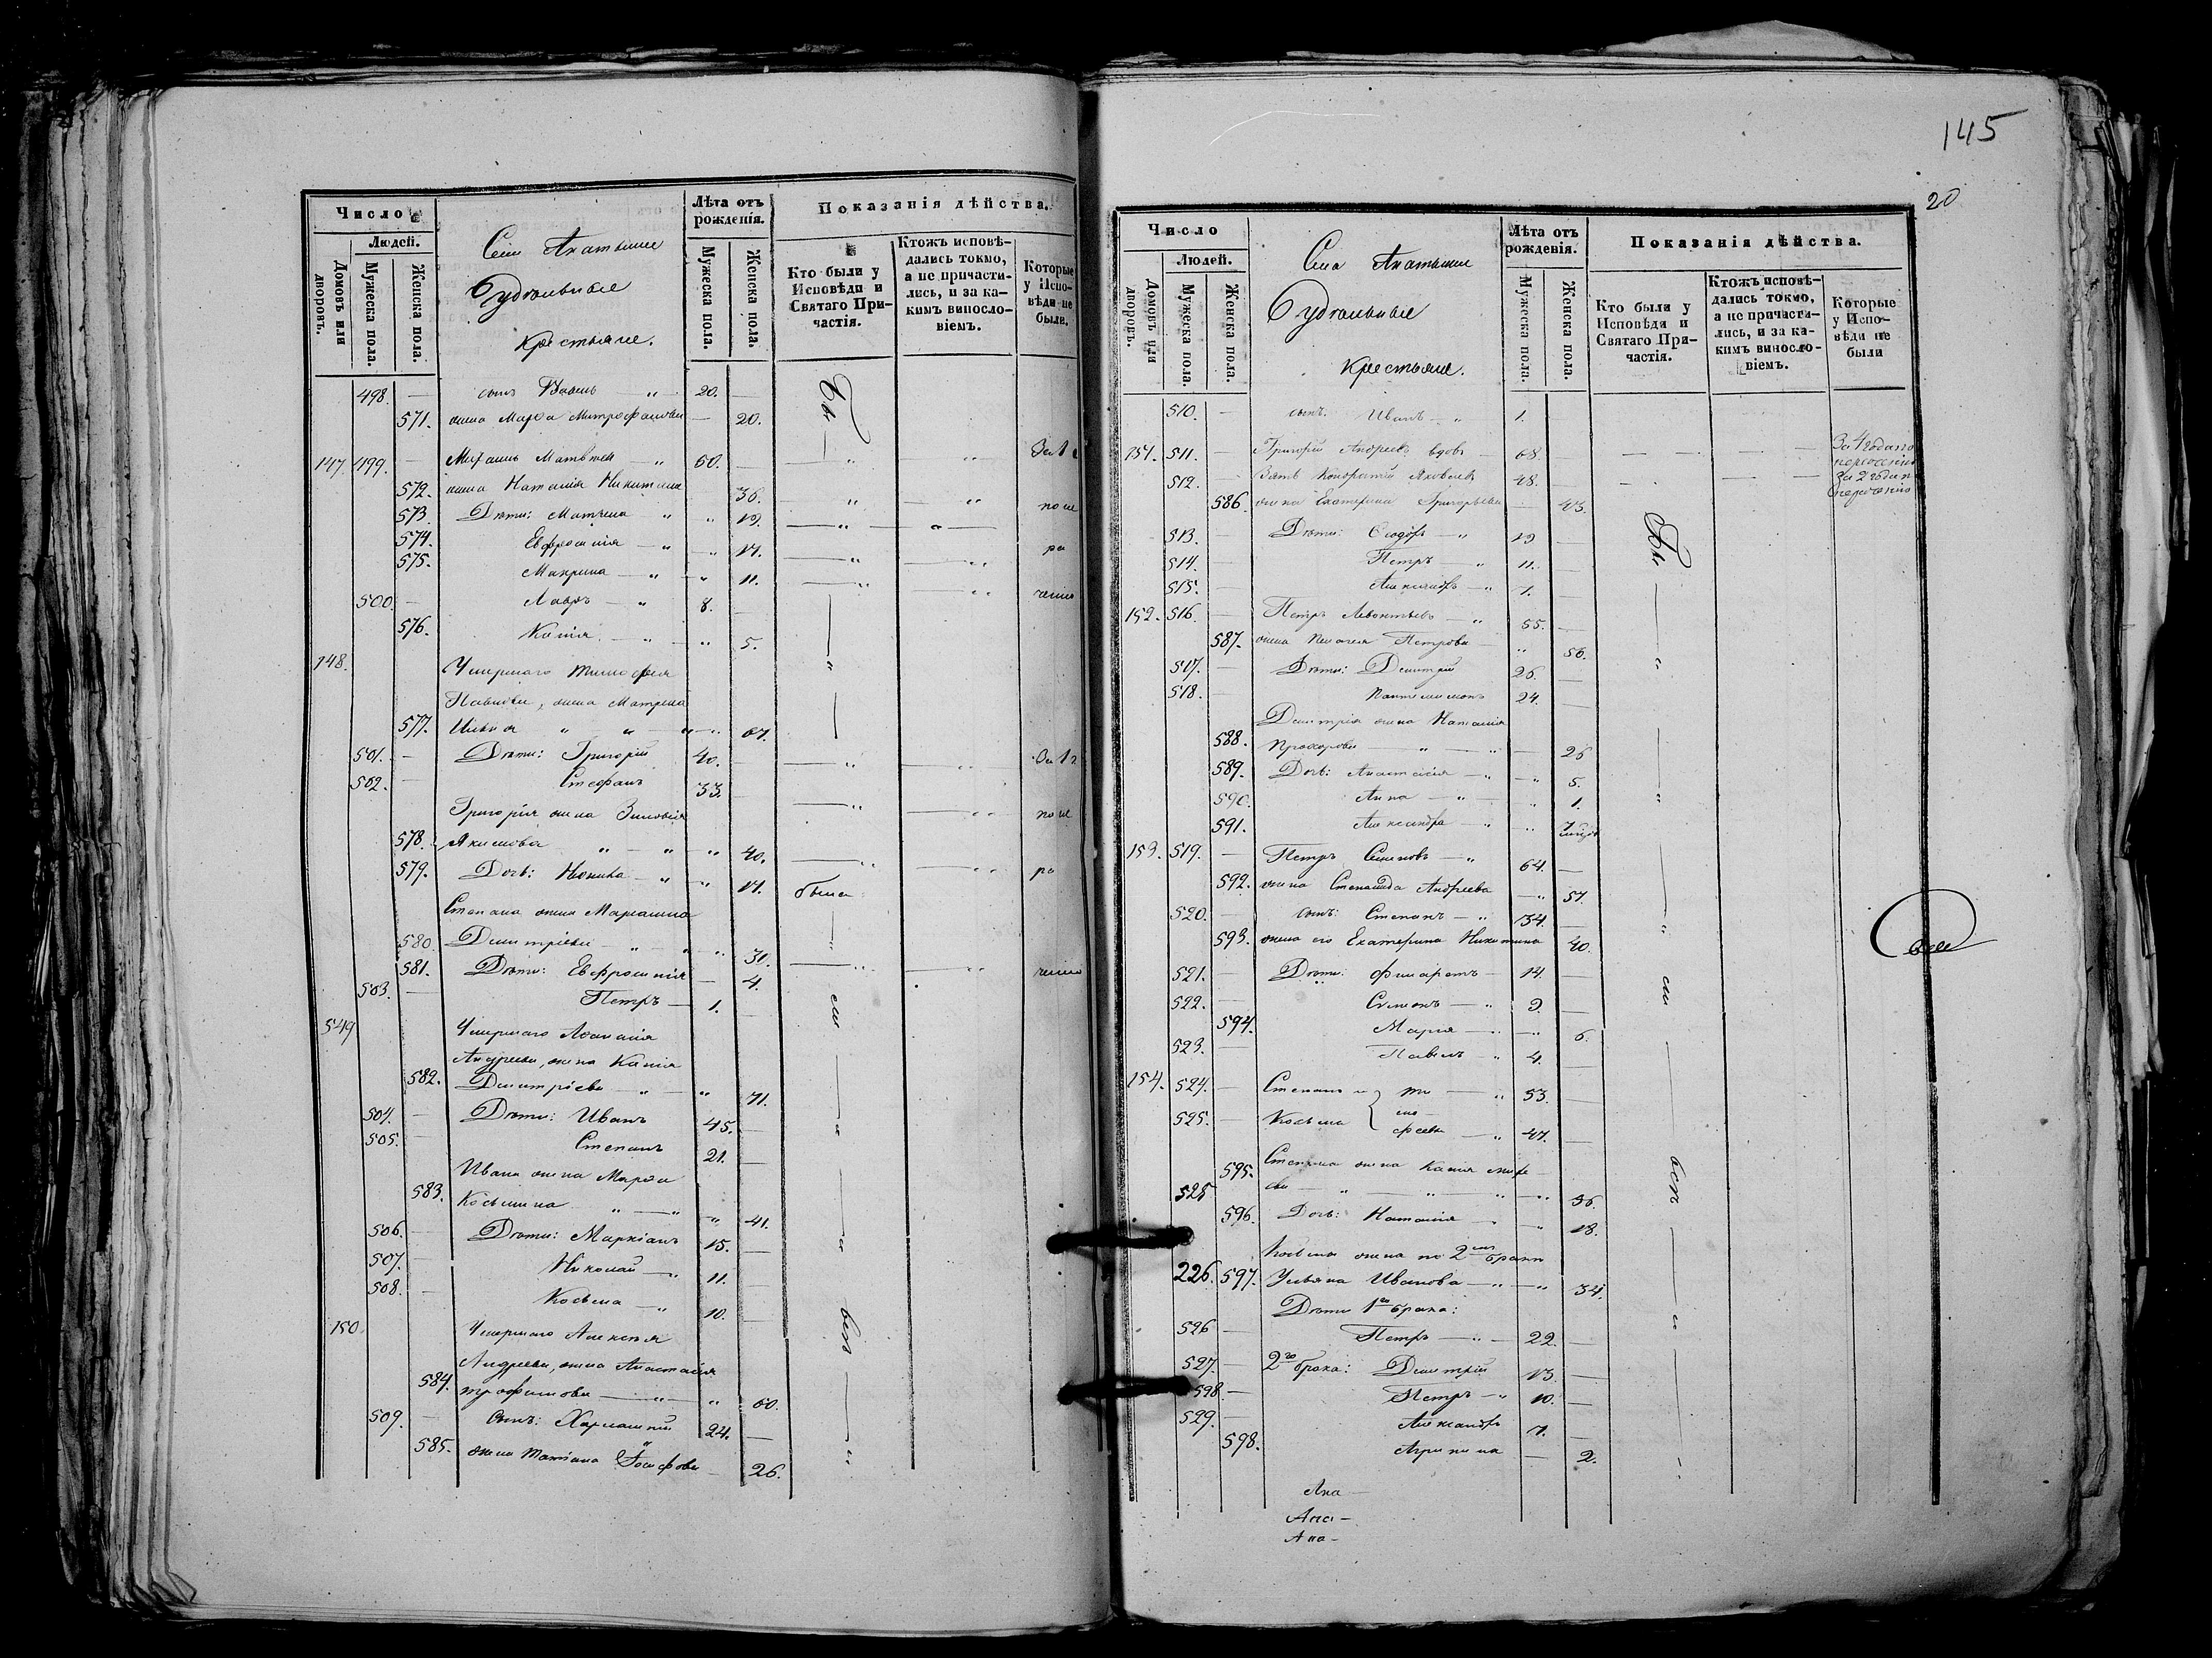 Число
Людей.
Домовъ или дворовъ.
Мужеска пола.
Женска пола.
Села Акатьино
Удѣльные
Крестьяне.
Лѣта отъ рожденія.
Мужеска пола.
Женска пола.
Показанія дѣйства.
Кто были у Исповѣди и Святаго При-
частія.
Ктожъ исповѣ-
дались токмо,
а не причасти-
лись, и за ка-
кимъ винosло-
віемъ.
Которые
у Испо-
вѣди не
были.
498. — сынъ „ 20. —
571. жена Марѳа Митрофанова — 20.
147. 499. — Михаилъ Матвѣевъ — „ 60. —
572. жена Наталія Никитина 36.
573. Дѣти: Матрена „ „ 19.
574. Евфросинія — „ „ 17.
575. Макрина — „ „ 11.
500. — Лавръ — „ 8. —
576. Ксенія — „ „ 5.
148. Умершаго Тимофея
Павлова, жена Матрена
577. Ильина „ „ „ 67.
501. — Дѣти: Григорій 40. —
502. — Стефанъ 33. —
Григорія жена Зиновія
578. Якимова „ „ „ 40.
579. Дочь: Нонна — „ „ 17. была
Степана жена Маріамна
580. Димитріева — „ „ 31.
581. Дѣти: Евфросинія — 4.
503. — Петръ — 1. —
549 Умершаго Аѳанасія
Андреева, жена Ксенія
582. Димитріева — „ „ 71.
504. — Дѣти: Иванъ 45. —
505. — Степанъ 21. —
Ивана жена Марѳа
583. Косьмина „ — „ „ 41.
506. — Дѣти: Маркіанъ 15. —
507. — Николай — „ 11. —
508. — Косьма — „ 10. —
150. Умершаго Алексѣя
Андреева, жена Анастасія
584. Трофимова — „ „ 60.
509. — Сынъ: Харлампій 24. —
585. жена Татіана Іосифова — 26.
145
20
Число
Людей.
Домовъ или дворовъ.
Мужеска пола.
Женска пола.
Села Акатьино
Удѣльные
Крестьяне.
Лѣта отъ рожденія.
Мужеска пола.
Женска пола.
Показанія дѣйства.
Кто были у
Исповѣди и
Святаго При-
частія.
Ктожъ исповѣ-
дались токмо,
а не причасти-
лись, и за ка-
кимъ винosло-
віемъ.
Которые
у Испо-
вѣди не
были
510. — сынъ. Иванъ — „ 1. —
151. 511. — Григорій Андреевъ вдовъ — 68. — За 4 года по
512. Зять Кондратій Яковлевъ 48. — За 2 года
586. жена Екатерина Григорьева — 43.
513. — Дѣти: Ѳеодоръ — „ 19 —
514. — Петръ „ 11. —
515. — Александръ — „ 7. —
152. 516. — Петръ Леонтьевъ — „ 55. —
587. жена Пелагея Петрова — „ 56.
517. — Дѣти: Димитрій 26. —
518. — Пантелеимонъ 24. —
Димитрія жена Наталія
588. Прохорова — „ — „ — 26
589. Дочь: Анастасія — „ „ 5.
590. Анна — „ — „ 1.
591. Александра — „ „
153. 519. — Петръ Семеновъ — „ 64. —
592. жена Степанида Андреева — „ 57.
520. — сынъ: Степанъ — „ 34. —
593. жена его Екатерина Никитина 40.
521. — Дѣти: Филаретъ — 14. —
522. — Симеонъ — „ 9. —
594. Марія — „ — „ 6.
523. Павелъ — „ 4. —
154. 524. — Степанъ и } Ти — „ 53. —
525. — Косьма { мо-
феевы — „ 47. —
Степана жена Ксенія
595. „ „ „ 56.
525
596. Дочь: Наталія „ „ 18.
Косьмы жена по 2мъ бракѣ
226. 597. Ульяна Иванова — „ „ 34.
Дѣти 1го брака:
526 — Петръ — „ 22. —
527. — 2го брака: Димитрій 13. —
598 — Петръ — „ 10. —
529. — Александръ 7. —
598. Агрипина — 2.
Ака —
Ака —
Ака —